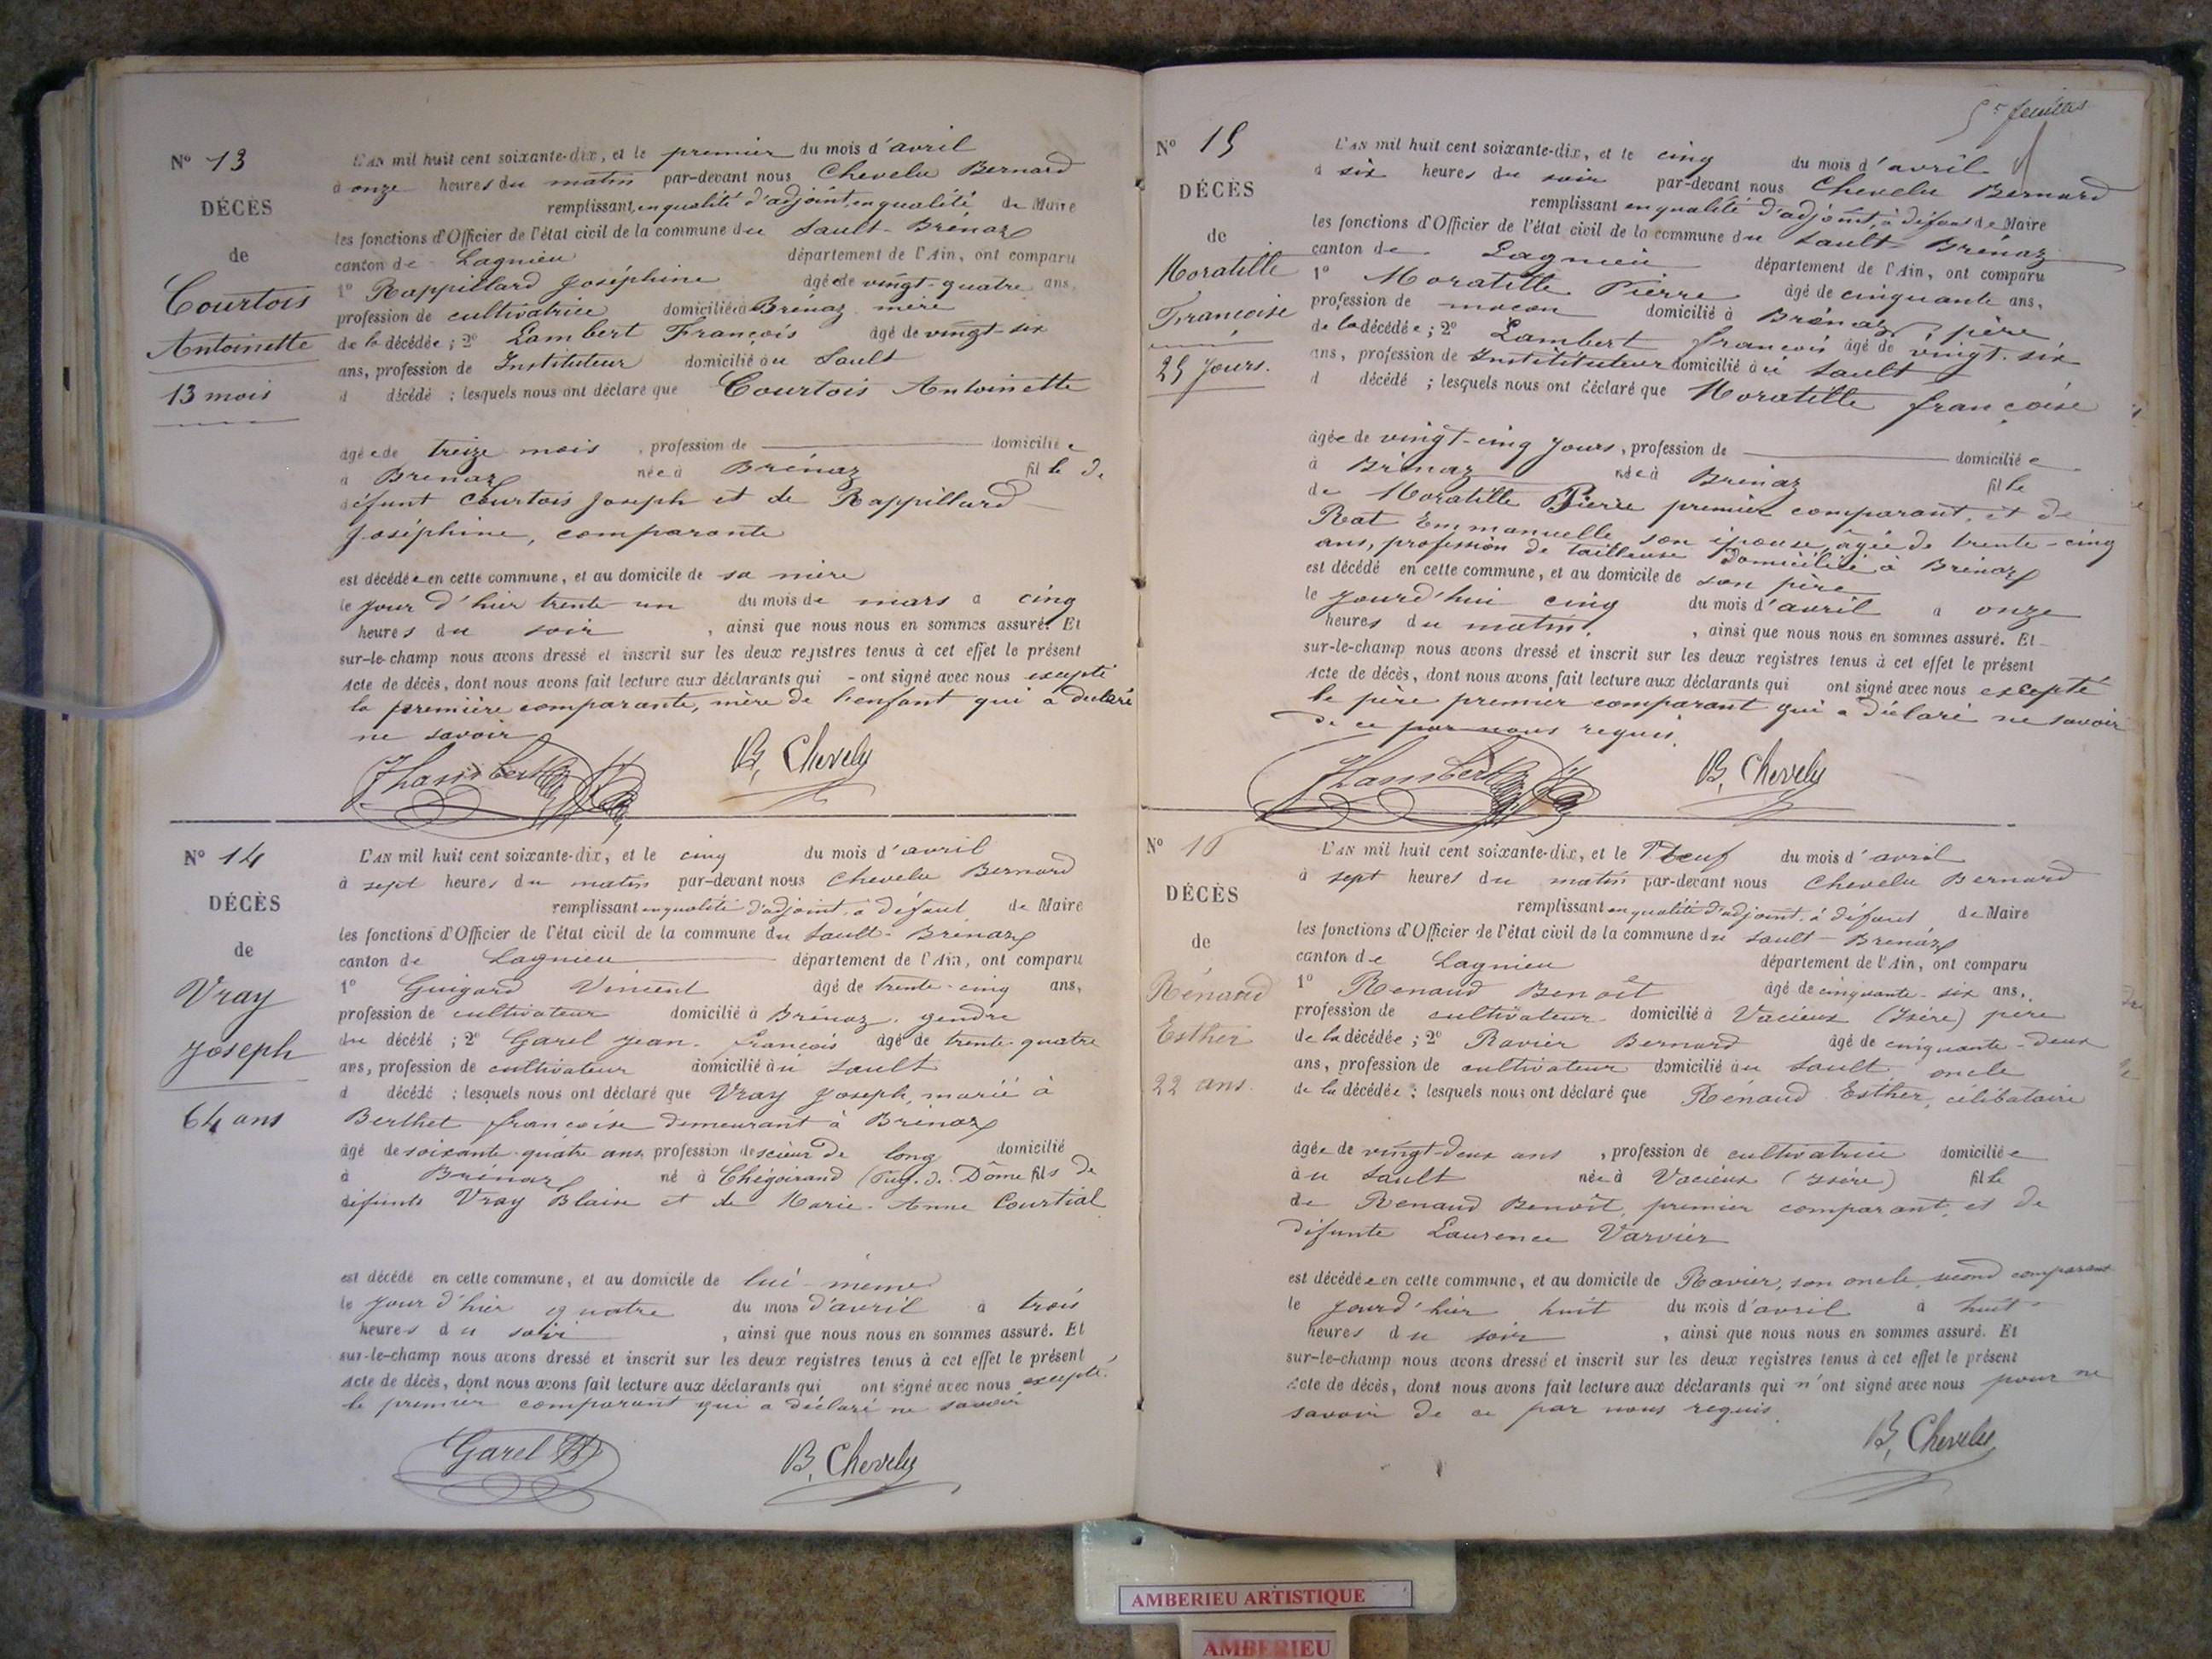 N° 13
DÉCÈS
de
Courtois
Antoinette
13 mois
L'AN mil huit cent soixante-dix, et le premier du mois d'avril
à onze heures du matin par-devant nous Chevelu Bernard
remplissant en qualité d'adjoint, en qualité de Maire
les fonctions d'Officier de l'état civil de la commune du Sault-Brénaz
canton de Lagnieu département de l'Ain, ont comparu
1° Rappillard Joséphine âgée de vingt-quatre ans,
profession de cultivatrice domiciliée à Brénaz mère
de la décédée ; 2° Lambert François âgé de vingt-six
ans, profession de Instituteur domicilié au Sault
d décédé ; lesquels nous ont déclaré que Courtois Antoinette
âgée de treize mois, profession de domiciliée
à Brénaz née à Brénaz fille de
défunt Courtois Joseph et de Rappillard
Joséphine, comparante
est décédée en cette commune, et au domicile de sa mère
le jour d'hier trente-un du mois de mars à cinq
heures du soir, ainsi que nous nous en sommes assuré. Et
sur-le-champ nous avons dressé et inscrit sur les deux registres tenus à cet effet le présent
Acte de décès, dont nous avons fait lecture aux déclarants qui - ont signé avec nous excepté
la première comparante, mère de l'enfant qui a déclaré
ne savoir
Lambert B. Chevelu
N° 14
DÉCÈS
de
Vray
Joseph
64 ans
L'AN mil huit cent soixante-dix, et le cinq du mois d'avril
à sept heures du matin par-devant nous Chevelu Bernard
remplissant en qualité d'adjoint, à défaut de Maire
les fonctions d'Officier de l'état civil de la commune du Sault-Brénaz
canton de Lagnieu département de l'Ain, ont comparu
1° Guigard Vincent âgé de trente-cinq ans,
profession de cultivateur domicilié à Brénaz, gendre
du décédé ; 2° Garel Jean-François âgé de trente-quatre
ans, profession de cultivateur domicilié au Sault
d décédé ; lesquels nous ont déclaré que Vray Joseph, marié à
Berthet françoise demeurant à Brénaz
âgé de soixante-quatre ans, profession de scieur de long domicilié
à Brénaz né à (Puy-d.-Dôme fils de
défunts Vray Blaise et de Marie-Anne Courtial
est décédé en cette commune, et au domicile de lui-même
le jour d'hier quatre du mois d'avril à trois
heures du soir, ainsi que nous nous en sommes assuré. Et
sur-le-champ nous avons dressé et inscrit sur les deux registres tenus à cet effet le présent
Acte de décès, dont nous avons fait lecture aux déclarants qui ont signé avec nous excepté
le premier comparant qui a déclaré ne savoir
Garel B. Chevelu
5e feuillet
N° 15
DÉCÈS
de
Moratille
Françoise
25 jours.
L'AN mil huit cent soixante-dix, et le cinq du mois d'avril
à six heures du soir par-devant nous Chevelu Bernard
remplissant en qualité d'adjoint, à défaut de Maire
les fonctions d'Officier de l'état civil de la commune du Sault-Brénaz
canton de Lagnieu département de l'Ain, ont comparu
1° Moratille Pierre âgé de cinquante ans,
profession de maçon domicilié à Brénaz, père
de la décédée ; 2° Lambert françois âgé de vingt-six
ans, profession de Instituteur domicilié au Sault
d décédé ; lesquels nous ont déclaré que Moratille françoise
âgée de vingt-cinq jours, profession de domiciliée
à Brénaz née à Brénaz fille
de Moratille Pierre premier comparant, et de
Rat Emmanuelle son épouse, âgée de trente-cinq
ans, profession de tailleuse domiciliée à Brénaz
est décédé en cette commune, et au domicile de son père
le jourd'hui cinq du mois d'avril à onze
heures du matin, ainsi que nous nous en sommes assuré. Et
sur-le-champ nous avons dressé et inscrit sur les deux registres tenus à cet effet le présent
Acte de décès, dont nous avons fait lecture aux déclarants qui ont signé avec nous excepté
le père premier comparant qui a déclaré ne savoir
de ce par nous requis.
Lambert B. Chevelu
N° 16
DÉCÈS
de
Rénaud
Esther
22 ans.
L'AN mil huit cent soixante-dix, et le Neuf du mois d'avril
à sept heures du matin par-devant nous Chevelu Bernard
remplissant en qualité d'adjoint, à défaut de Maire
les fonctions d'Officier de l'état civil de la commune du Sault-Brénaz
canton de Lagnieu département de l'Ain, ont comparu
1° Renaud Benoît âgé de cinquante-six ans,
profession de cultivateur domicilié à Vacieux (Isère) père
de la décédée ; 2° Ravier Bernard âgé de cinquante-deux
ans, profession de cultivateur domicilié au Sault oncle
de la décédée ; lesquels nous ont déclaré que Rénaud Esther, célibataire
âgée de vingt-deux ans, profession de cultivatrice domiciliée
au Sault née à Vacieux (Isère) fille
de Renaud Benoît, premier comparant, et de
défunte Laurence Varvier
est décédée en cette commune, et au domicile de Ravier, son oncle, second comparant
le jourd'hier huit du mois d'avril à huit
heures du soir, ainsi que nous nous en sommes assuré. Et
sur-le-champ nous avons dressé et inscrit sur les deux registres tenus à cet effet le présent
Acte de décès, dont nous avons fait lecture aux déclarants qui n'ont signé avec nous pour ne
savoir de ce par nous requis.
B. Chevelu
AMBERIEU ARTISTIQUE
AMBERIEU